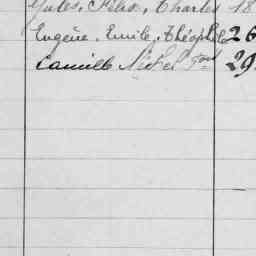 Jules, Félix, Charles 18
Eugène, Emile, Théophile 26
Camille Michel 29